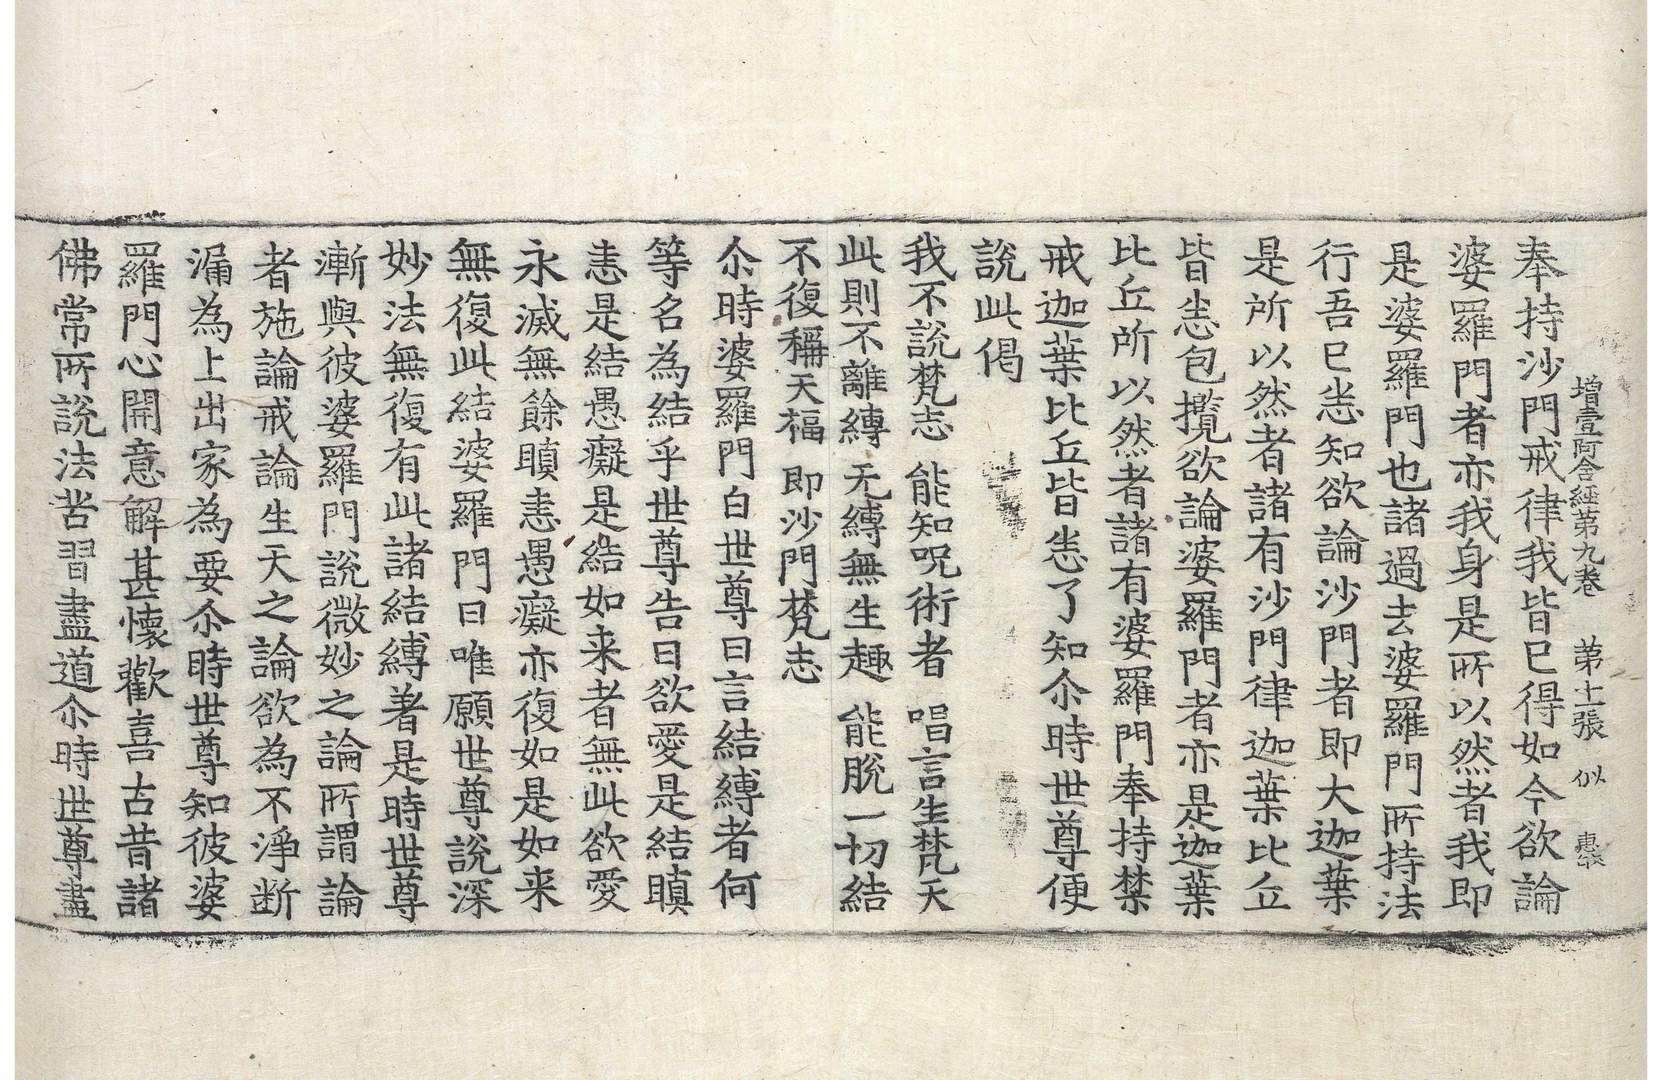 增壹阿含經第九卷 第十二張 似 惠
奉持沙門戒律我皆已得如今欲論
婆羅門者亦我身是所以然者我即
是婆羅門也諸過去婆羅門所持法
行吾已悉知欲論沙門者即大迦葉
是所以然者諸有沙門律迦葉比丘
皆悉包攬欲論婆羅門者亦是迦葉
比丘所以然者諸有婆羅門奉持禁
戒迦葉比丘皆悉了知尒時世尊便
說此偈
我不說梵志 能知呪術者 唱言生梵天
此則不離縛 无縛無生趣 能脫一切結
不復稱天福 即沙門梵志
尒時婆羅門白世尊曰言結縛者何
等名為結乎世尊告曰欲愛是結瞋
恚是結愚癡是結如来者無此欲愛
永滅無餘瞋恚愚癡亦復如是如来
無復此結婆羅門曰唯願世尊說深
妙法無復有此諸結縛著是時世尊
漸與彼婆羅門說微妙之論所謂論
者施論戒論生天之論欲為不淨断
漏為上出家為要尒時世尊知彼婆
羅門心開意解甚懷歡喜古昔諸
佛常所說法苦習盡道尒時世尊盡